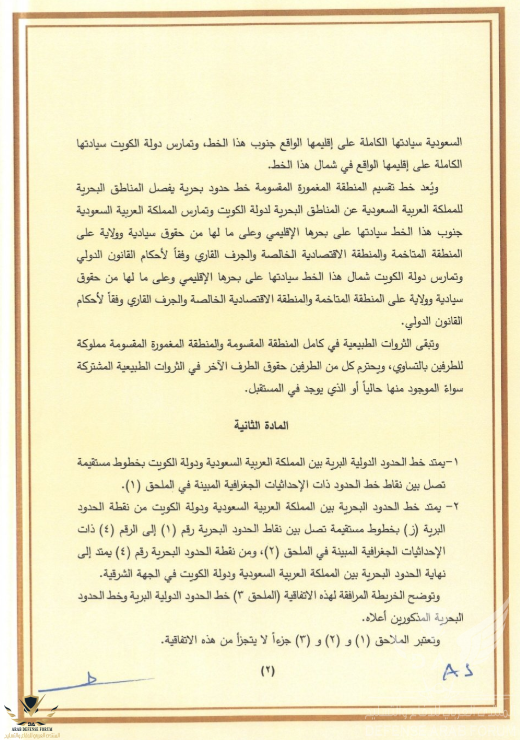 السعودية سيادتها الكاملة على إقليمها الواقع جنوب هذا الخط، وتمارس دولة الكويت سيادتها
الكاملة على إقليمها الواقع في شمال هذا الخط.
ويُعد خط تقسيم المنطقة المغمورة المقسومة خط حدود بحرية يفصل المناطق البحرية
للمملكة العربية السعودية عن المناطق البحرية لدولة الكويت وتمارس المملكة العربية السعودية
جنوب هذا الخط سيادتها على بحرها الإقليمي وعلى ما لها من حقوق سيادية وولاية على
المنطقة المتاخمة والمنطقة الاقتصادية الخالصة والجرف القاري وفقاً لأحكام القانون الدولي
وتمارس دولة الكويت شمال هذا الخط سيادتها على بحرها الإقليمي وعلى ما لها من حقوق
سيادية وولاية على المنطقة المتاخمة والمنطقة الاقتصادية الخالصة والجرف القاري وفقاً لأحكام
القانون الدولي.
وتبقى الثروات الطبيعية في كامل المنطقة المقسومة والمنطقة المغمورة المقسومة مملوكة
للطرفين بالتساوي، ويحترم كل من الطرفين حقوق الطرف الآخر في الثروات الطبيعية المشتركة
سواءً الموجود منها حالياً أو الذي يوجد في المستقبل.
المادة الثانية
١-يمتد خط الحدود الدولية البرية بين المملكة العربية السعودية ودولة الكويت بخطوط مستقيمة
تصل بين نقاط خط الحدود ذات الإحداثيات الجغرافية المبينة في الملحق (١).
٢- يمتد خط الحدود البحرية بين المملكة العربية السعودية ودولة الكويت من نقطة الحدود
البرية (ز) بخطوط مستقيمة تصل بين نقاط الحدود البحرية رقم (١) إلى الرقم (٤) ذات
الإحداثيات الجغرافية المبينة في الملحق (٢)، ومن نقطة الحدود البحرية رقم (٤) يمتد إلى
نهاية الحدود البحرية بين المملكة العربية السعودية ودولة الكويت في الجهة الشرقية.
وتوضح الخريطة المرافقة لهذه الاتفاقية (الملحق ٣) خط الحدود الدولية البرية وخط الحدود
البحرية المذكورين أعلاه.
وتعتبر الملاحق (١) و (٢) و (٣) جزءاً لا يتجزأ من هذه الاتفاقية.
(٢)
AS
ARAB DEFENSE FORUM